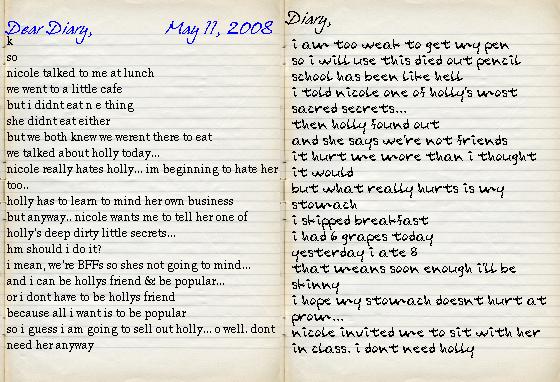 Dear Diary, May 11, 2008
k
so
nicole talked to me at lunch
we went to a little cafe
but i didnt eat n e thing
she didnt eat either
but we both knew we werent there to eat
we talked about holly today...
nicole really hates holly... im beginning to hate her
too..
holly has to learn to mind her own business
but anyway.. nicole wants me to tell her one of
holly's deep dirty little secrets...
hm should i do it?
i mean, we're BFFs so shes not going to mind...
and i can be hollys friend & be popular...
or i dont have to be hollys friend
because all i want is to be popular
so i guess i am going to sell out holly... o well. dont
need her anyway
Diary,
i am too weak to get my pen
so i will use this died out pencil
school has been like hell
i told nicole one of holly's most
sacred secrets...
then holly found out
and she says we're not friends
it hurt me more than i thought
it would
but what really hurts is my
stomach
i skipped breakfast
i had 6 grapes today
yesterday i ate 8
that means soon enough i'll be
skinny
i hope my stomach doesnt hurt at
prom...
nicole invited me to sit with her
in class. i dont need holly